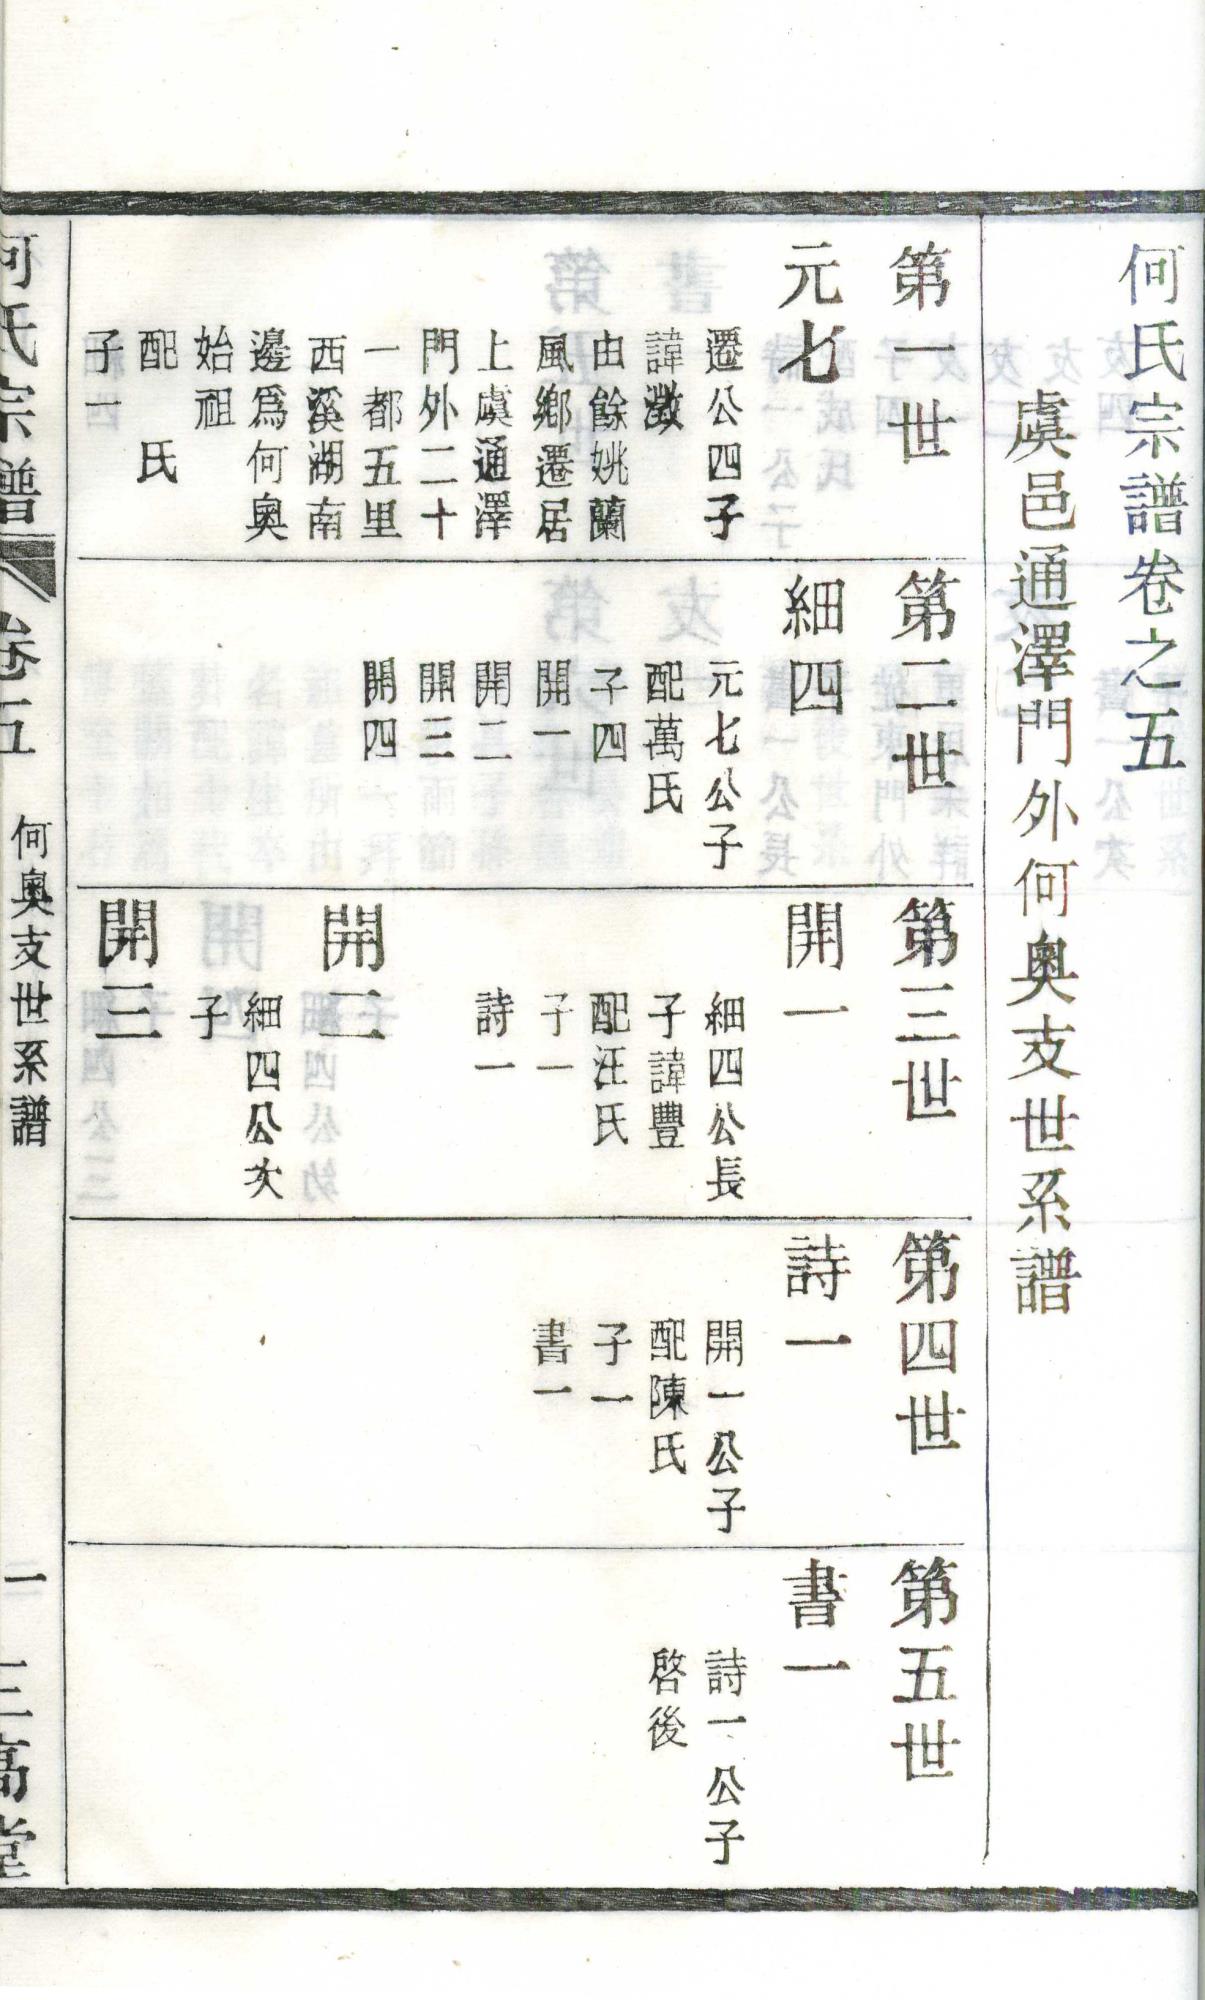 何氏宗譜卷之五
虞邑通澤門外何奧支世系譜
第一世
元七
遷公四子
諱
由餘姚蘭
風鄉遷居
上虞通澤
門外二十
一都五里
西溪湖南
邊爲何奧
始祖
配 氏
子一
第二世
細四
元七公子
配萬氏
子四
開一
開二
開三
開四
第三世
開一
細四公長
子諱豐
配汪氏
子一
詩一
開二
細四公次
子
開三
第四世
詩一
開一公子
配陳氏
子一
書一
第五世
書一
詩一公子
啓後
何氏宗譜
卷五
何奧支世系譜
一
三高堂